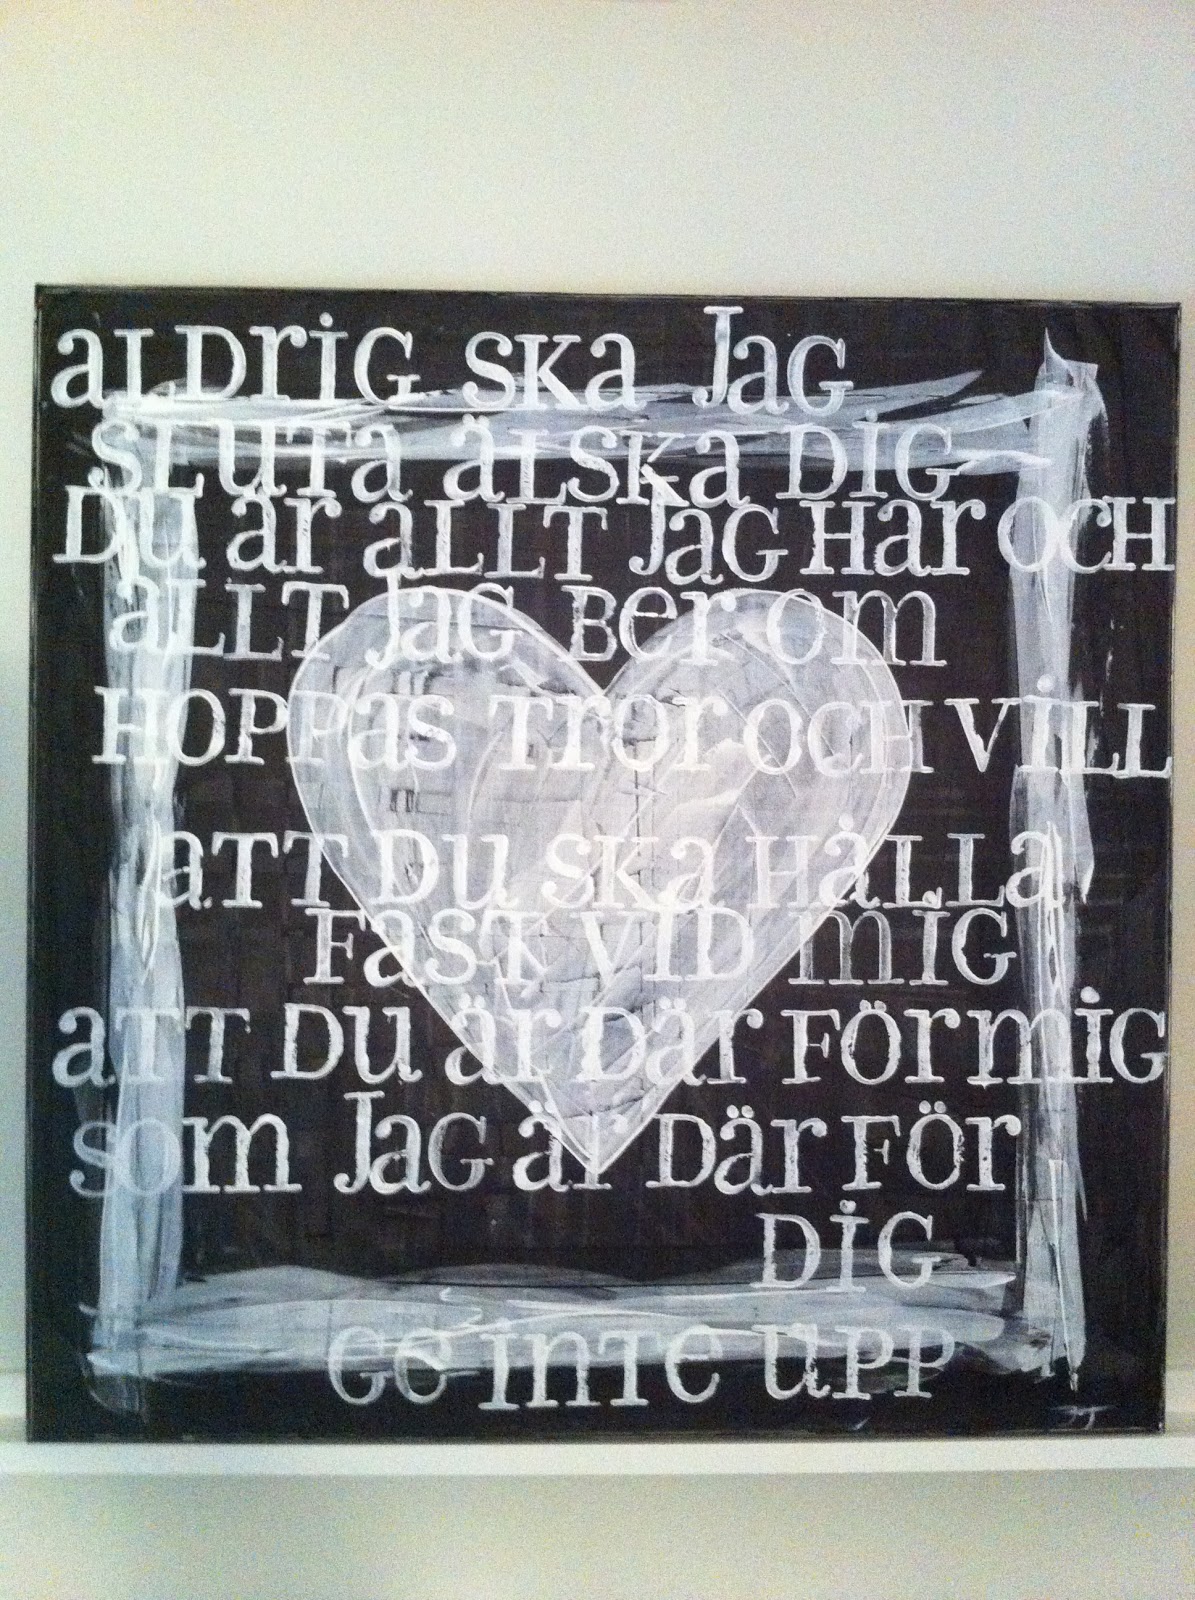 aLDriG SKa JaG
SLuTa äLSKa DiG
Du är aLLT JaG Har OCH
aLLT JaG Ber om
HOPPas Tror OCH VILL
aTT Du SKa HåLLa
FasT VID miG
aTT Du är Där För miG
som JaG är Där För
DiG
Ge inTe uPP